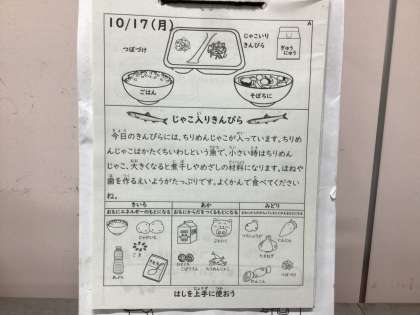 10/17(月)
A
つぼづけ
じゃこいり
きんぴら
ぎゅう
にゅう
ごはん
そぼろに
じゃこ入りきんぴら
今日のきんぴらには、ちりめんじゃこが入っています。ちりめ
んじゃこはかたくちいわしという魚で、小さい時はちりめん
じゃこ、大きくなると煮干しやめざしの材料になります。ほねや
歯を作るえいようがたっぷりです。よくかんで食べてください
ね。
きいろ
あか
みどり
おもにエネルギーのもとになる
おもにからだをつくるもとになる
じゃがいも
ごま
あぶら
ぶたにく
ちりめんじゃこ
たまねぎ
にんじん
れんこん
つぼづけ
はしを上手に使おう